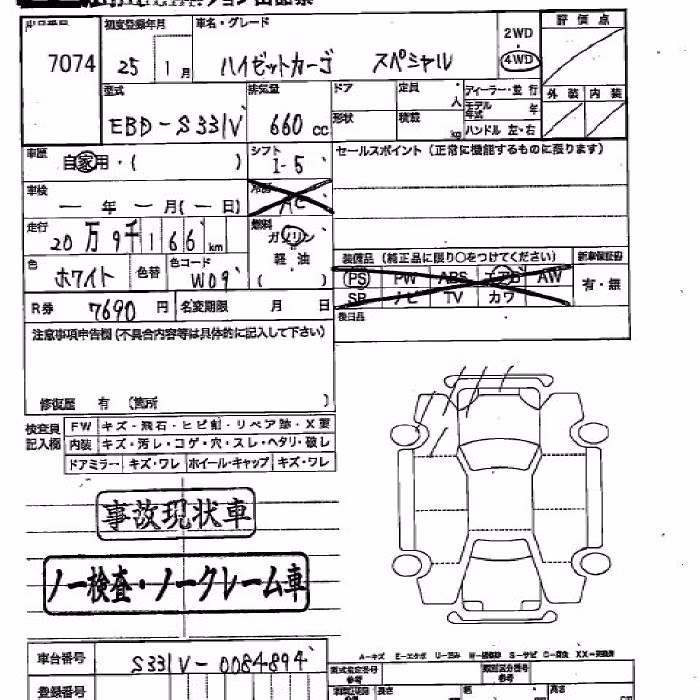 出品票
7074
初度登録年月
25 1月
車名・グレード
ハイゼットカーゴ スペシャル
2WD
4WD
評価点
型式
EBD-S331V
排気量
660 cc
ドア
定員 人
形状
積載 kg
ディーラー・並行
モデル年式 年
ハンドル 左・右
外装 内装
車歴
自家用・( )
シフト
I-5
セールスポイント (正常に機能するものに限ります)
車検
ー年ー月(ー日)
冷房
AC
走行
20万9千166km
燃料
ガソリン
軽油
( )
装備品 (純正品に限り○をつけてください)
新車保証書
PS PW ABS エアB AW
SR ナビ TV カワ
有・無
色
ホワイト
色替
色コード
W09
R券
7690円
名変期限 月 日
後日品
注意事項申告欄(不具合内容等は具体的に記入して下さい)
修復歴 有 (箇所 )
検査員記入欄
FW キズ・飛石・ヒビ割・リペア跡・X要
内装 キズ・汚レ・コゲ・穴・スレ・ヘタリ・破レ
ドアミラー キズ・ワレ ホイール・キャップ キズ・ワレ
事故現状車
ノー検査・ノークレーム車
A-キズ E-エクボ U-凹み W-補修跡 S-サビ C-腐食 XX-交換済
車台番号
S331V-0084894
登録番号
型式指定番号
参考
類別区分番号
参考
長さ
幅
高さ
cm